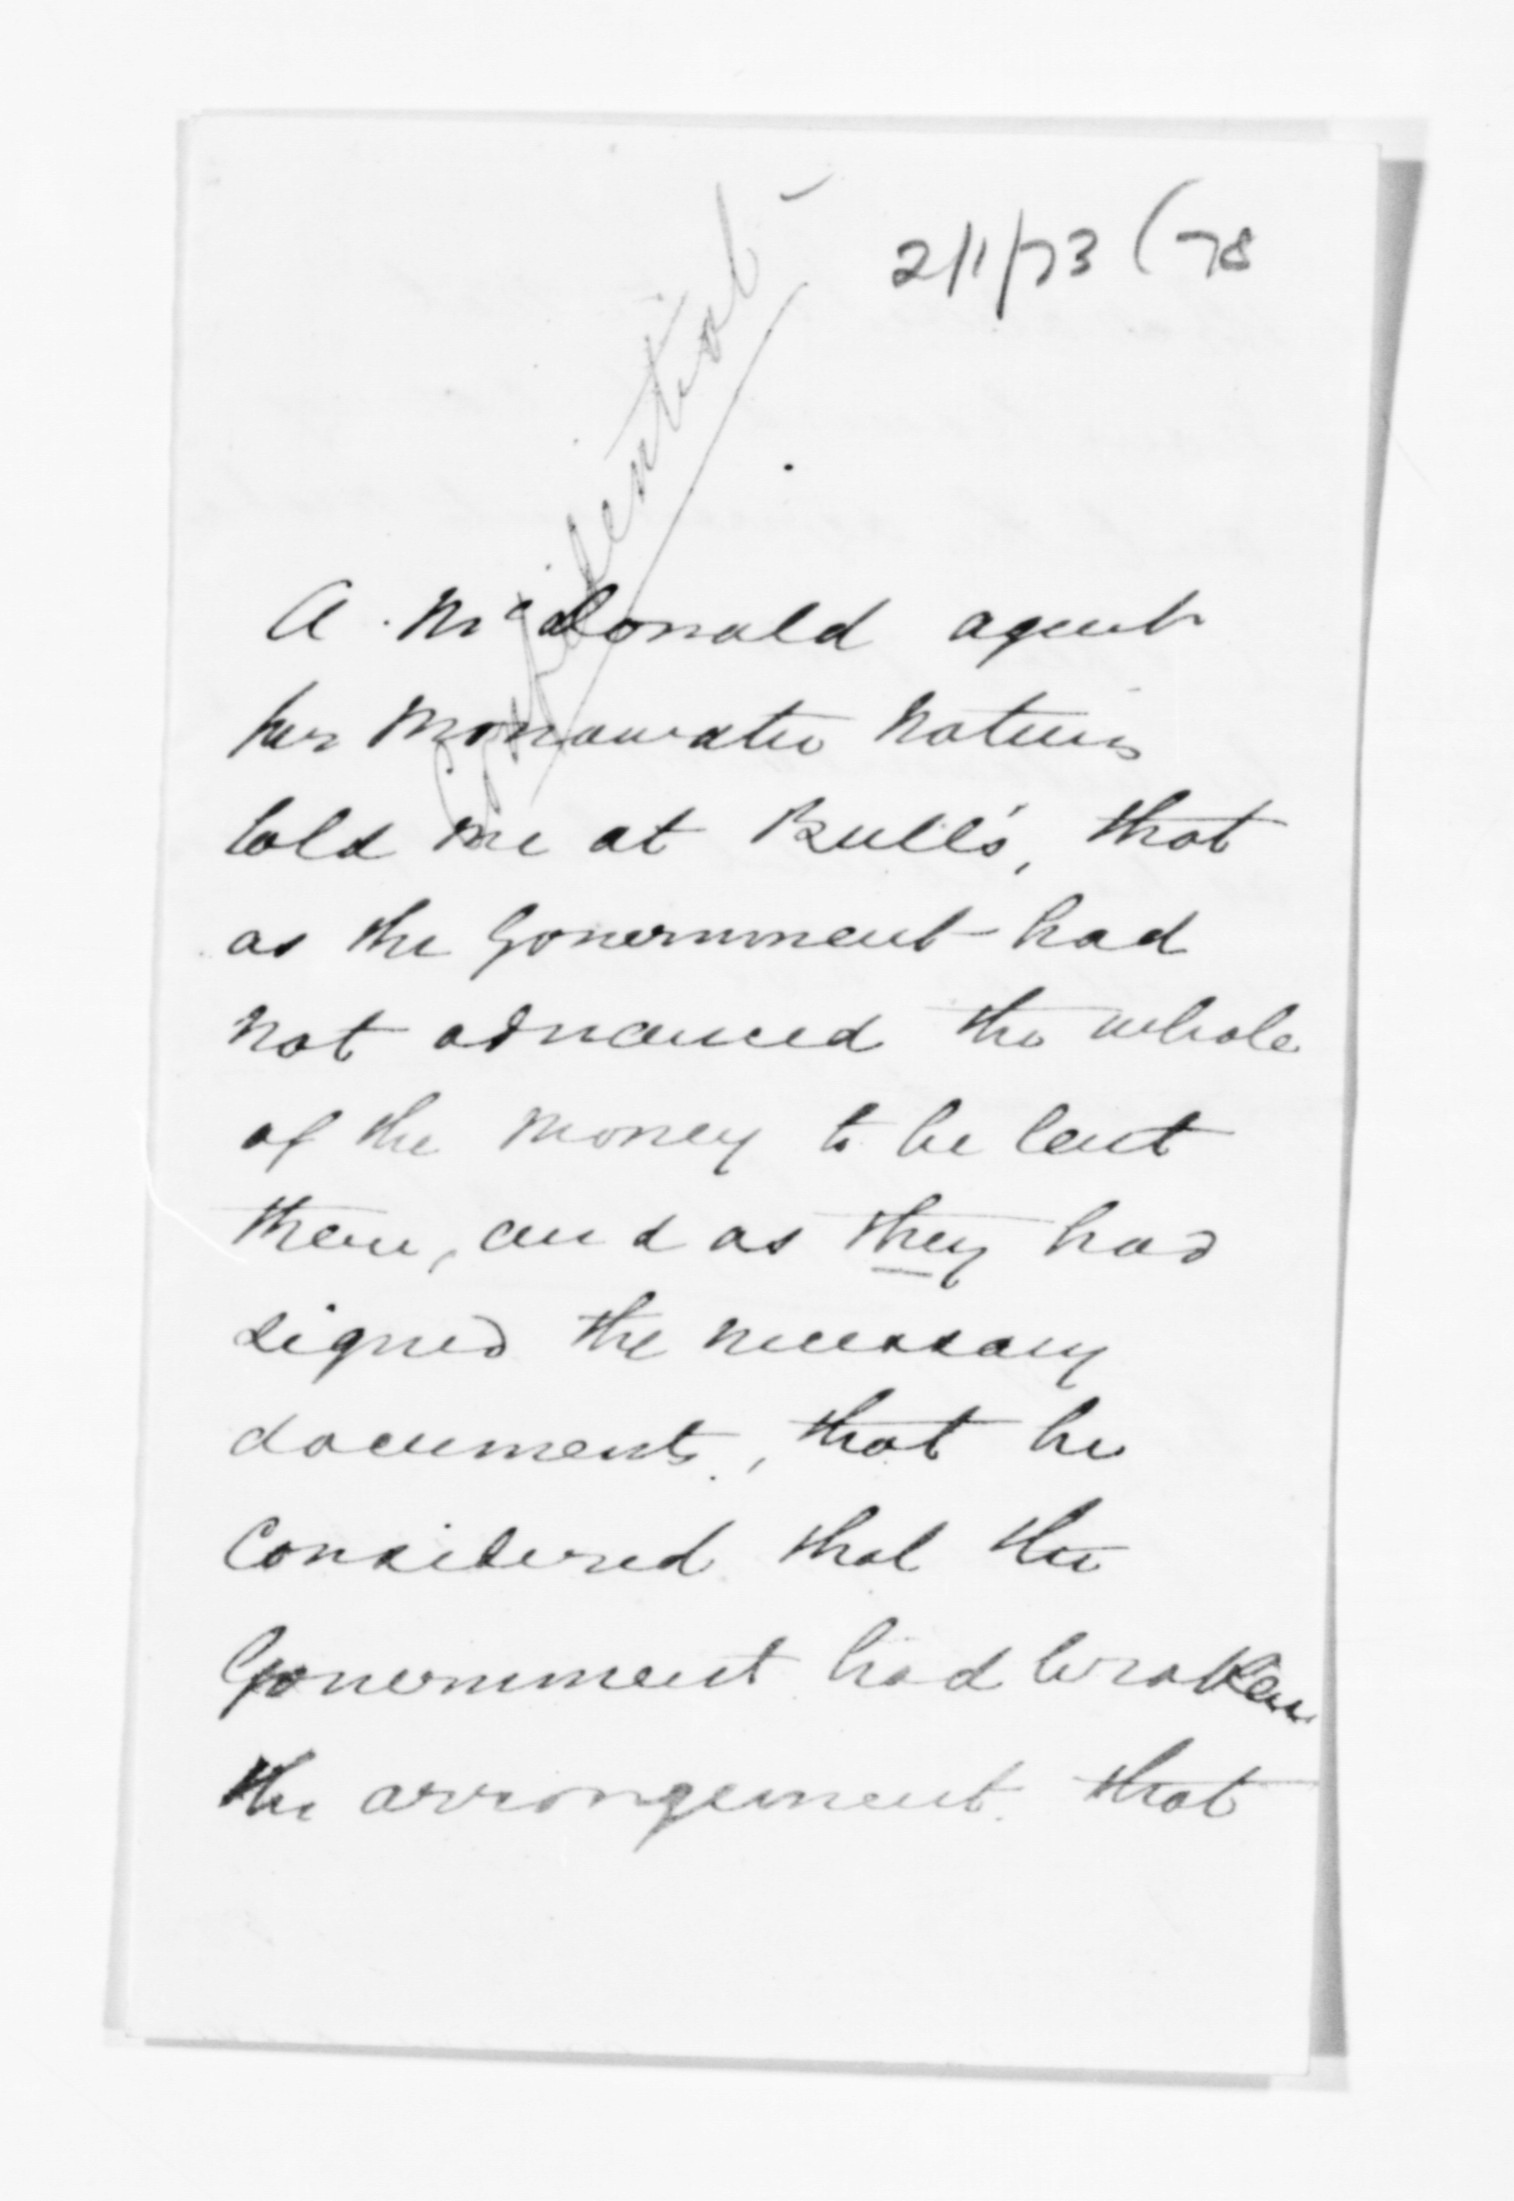 2/1/73 (78
Confidential
A. McDonald agent
for Manawatu Natives
told me at Bull's, that
as the Government had
not advanced the whole
of the money to be lent
them, and as they had
signed the necessary
documents, that he
considered that the
Government had broken
the arrangement that